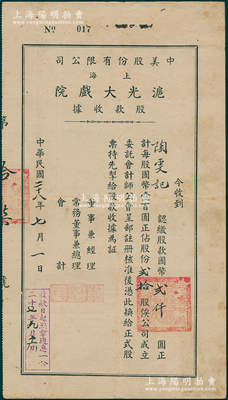 上海阳明拍卖
No 017
中美股份有限公司
上海
滬光大戲院
股款收據
今收到
陶雯記
認繳股款國幣貳仟圓正
計每股國幣壹百圓正佔股份貳拾股俟公司成立
委託會計師公會呈部註册核准後憑此換給正式股
票特先掣給股款收據為証
董事兼經理
常務董事兼總理
會計
中華民國二八年七月一日
第
號
上海陽明拍賣有限公司